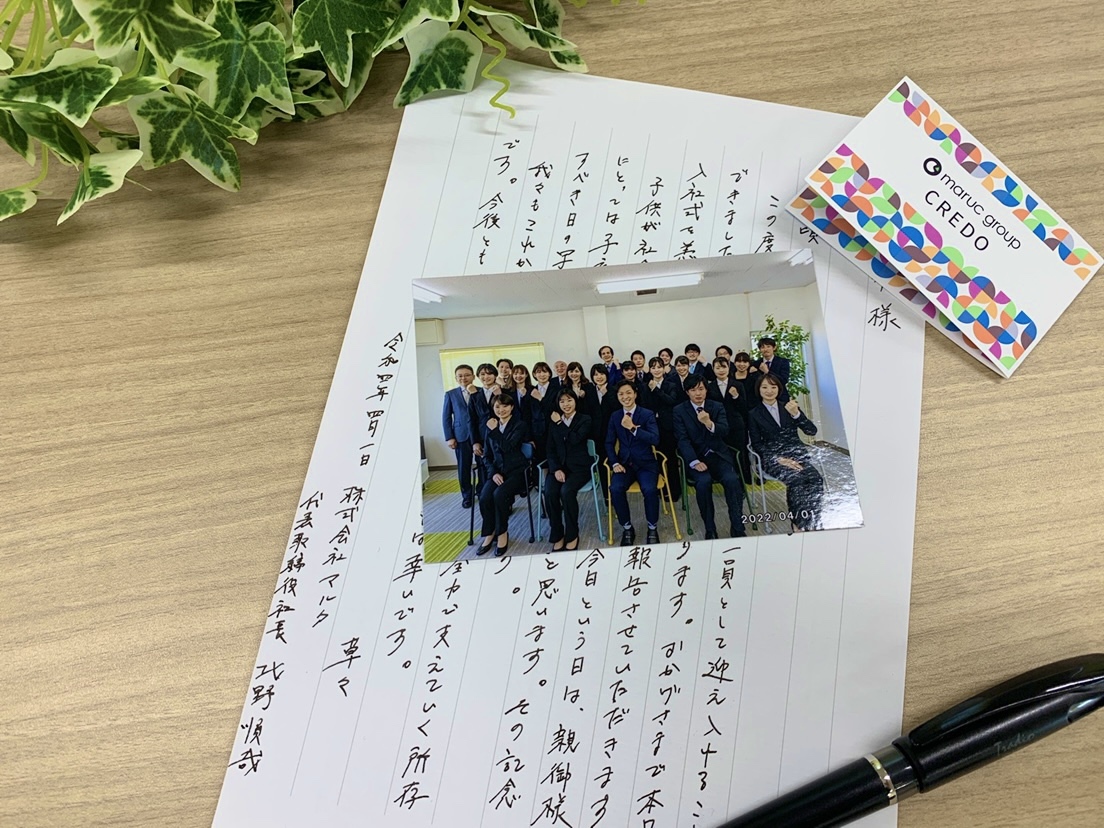 様
この度
一員として迎え入れるこ
できました
ります。おかげさまで本
入社式を
報告させていただきます
子供が社
今日という日は、親御様
にとっては子
と思います。その記念
すべき日の
う。
我々もこれか
全力で支えていく所存
です。今後とも
は幸いです。
草々
令和四年四月一日
株式会社マルク
代表取締役社長 北野順哉
maruc group
CREDO
2022/04/01